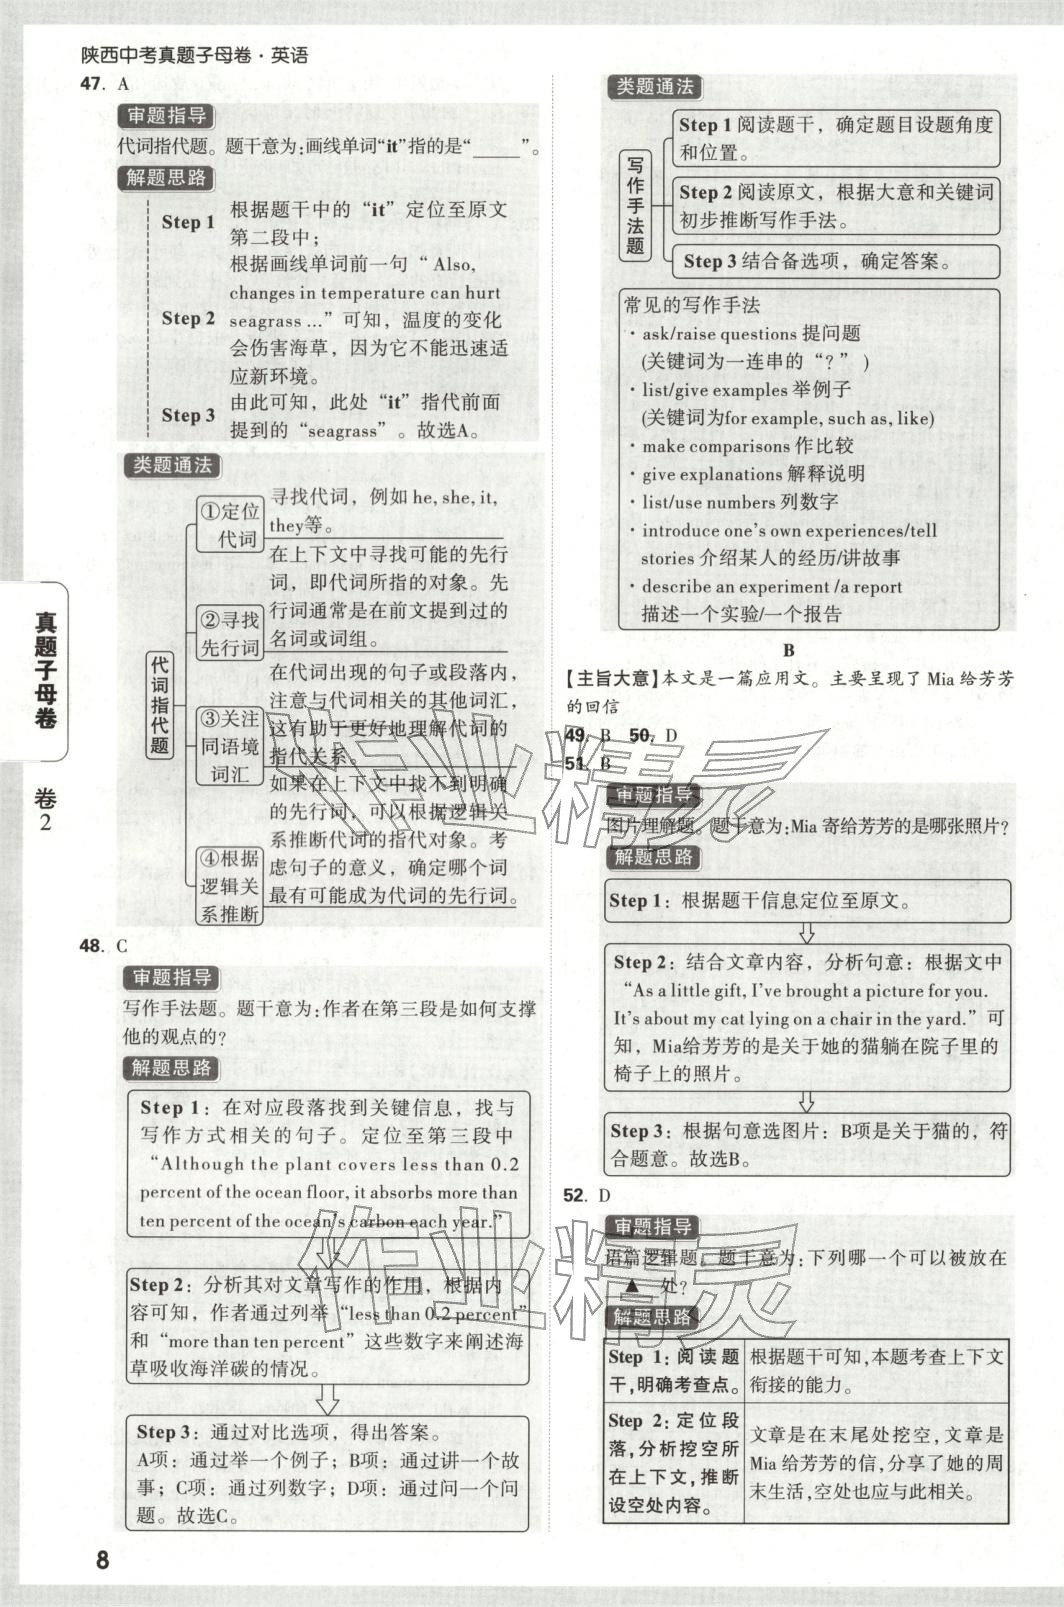 陕西中考真题子母卷·英语
47. A
审题指导
代词指代题。题干意为:画线单词“it”指的是“____”。
解题思路
Step 1 根据题干中的“it”定位至原文
第二段中;
Step 2 根据画线单词前一句“Also,
changes in temperature can hurt
seagrass ...”可知，温度的变化
会伤害海草，因为它不能迅速适
应新环境。
Step 3 由此可知，此处“it”指代前面
提到的“seagrass”。故选A。
类题通法
代词指代题
①定位
代词
寻找代词，例如he, she, it,
they等。
②寻找
先行词
在上下文中寻找可能的先行
词，即代词所指的对象。先
行词通常是在前文提到过的
名词或词组。
③关注
同语境
词汇
在代词出现的句子或段落内，
注意与代词相关的其他词汇，
这有助于更好地理解代词的
指代关系。
④根据
逻辑关
系推断
如果在上下文中找不到明确
的先行词，可以根据逻辑关
系推断代词的指代对象。考
虑句子的意义，确定哪个词
最有可能成为代词的先行词。
48. C
审题指导
写作手法题。题干意为:作者在第三段是如何支撑
他的观点的?
解题思路
Step 1：在对应段落找到关键信息，找与
写作方式相关的句子。定位至第三段中
“Although the plant covers less than 0.2
percent of the ocean floor, it absorbs more than
ten percent of the ocean's carbon each year.”
Step 2：分析其对文章写作的作用，根据内
容可知，作者通过列举“less than 0.2 percent”
和“more than ten percent”这些数字来阐述海
草吸收海洋碳的情况。
Step 3：通过对比选项，得出答案。
A项：通过举一个例子；B项：通过讲一个故
事；C项：通过列数字；D项：通过问一个问
题。故选C。
8
真题子母卷
卷2
类题通法
写作手法题
Step 1 阅读题干，确定题目设题角度
和位置。
Step 2 阅读原文，根据大意和关键词
初步推断写作手法。
Step 3 结合备选项，确定答案。
常见的写作手法
· ask/raise questions 提问题
(关键词为一连串的“?”)
· list/give examples 举例子
(关键词为for example, such as, like)
· make comparisons 作比较
· give explanations 解释说明
· list/use numbers 列数字
· introduce one's own experiences/tell
stories 介绍某人的经历/讲故事
· describe an experiment /a report
描述一个实验/一个报告
B
【主旨大意】本文是一篇应用文。主要呈现了 Mia 给芳芳
的回信
49. B 50. D
51. B
审题指导
图片理解题。题干意为:Mia 寄给芳芳的是哪张照片?
解题思路
Step 1：根据题干信息定位至原文。
Step 2：结合文章内容，分析句意：根据文中
“As a little gift, I've brought a picture for you.
It's about my cat lying on a chair in the yard.”可
知，Mia给芳芳的是关于她的猫躺在院子里的
椅子上的照片。
Step 3：根据句意选图片：B项是关于猫的，符
合题意。故选B。
52. D
审题指导
语篇逻辑题。题干意为:下列哪一个可以被放在
▲ 处?
解题思路
Step 1：阅读题
干,明确考查点。
根据题干可知,本题考查上下文
衔接的能力。
Step 2：定位段
落,分析挖空所
在上下文,推断
设空处内容。
文章是在末尾处挖空,文章是
Mia 给芳芳的信,分享了她的周
末生活,空处也应与此相关。
作业精灵
作业精灵